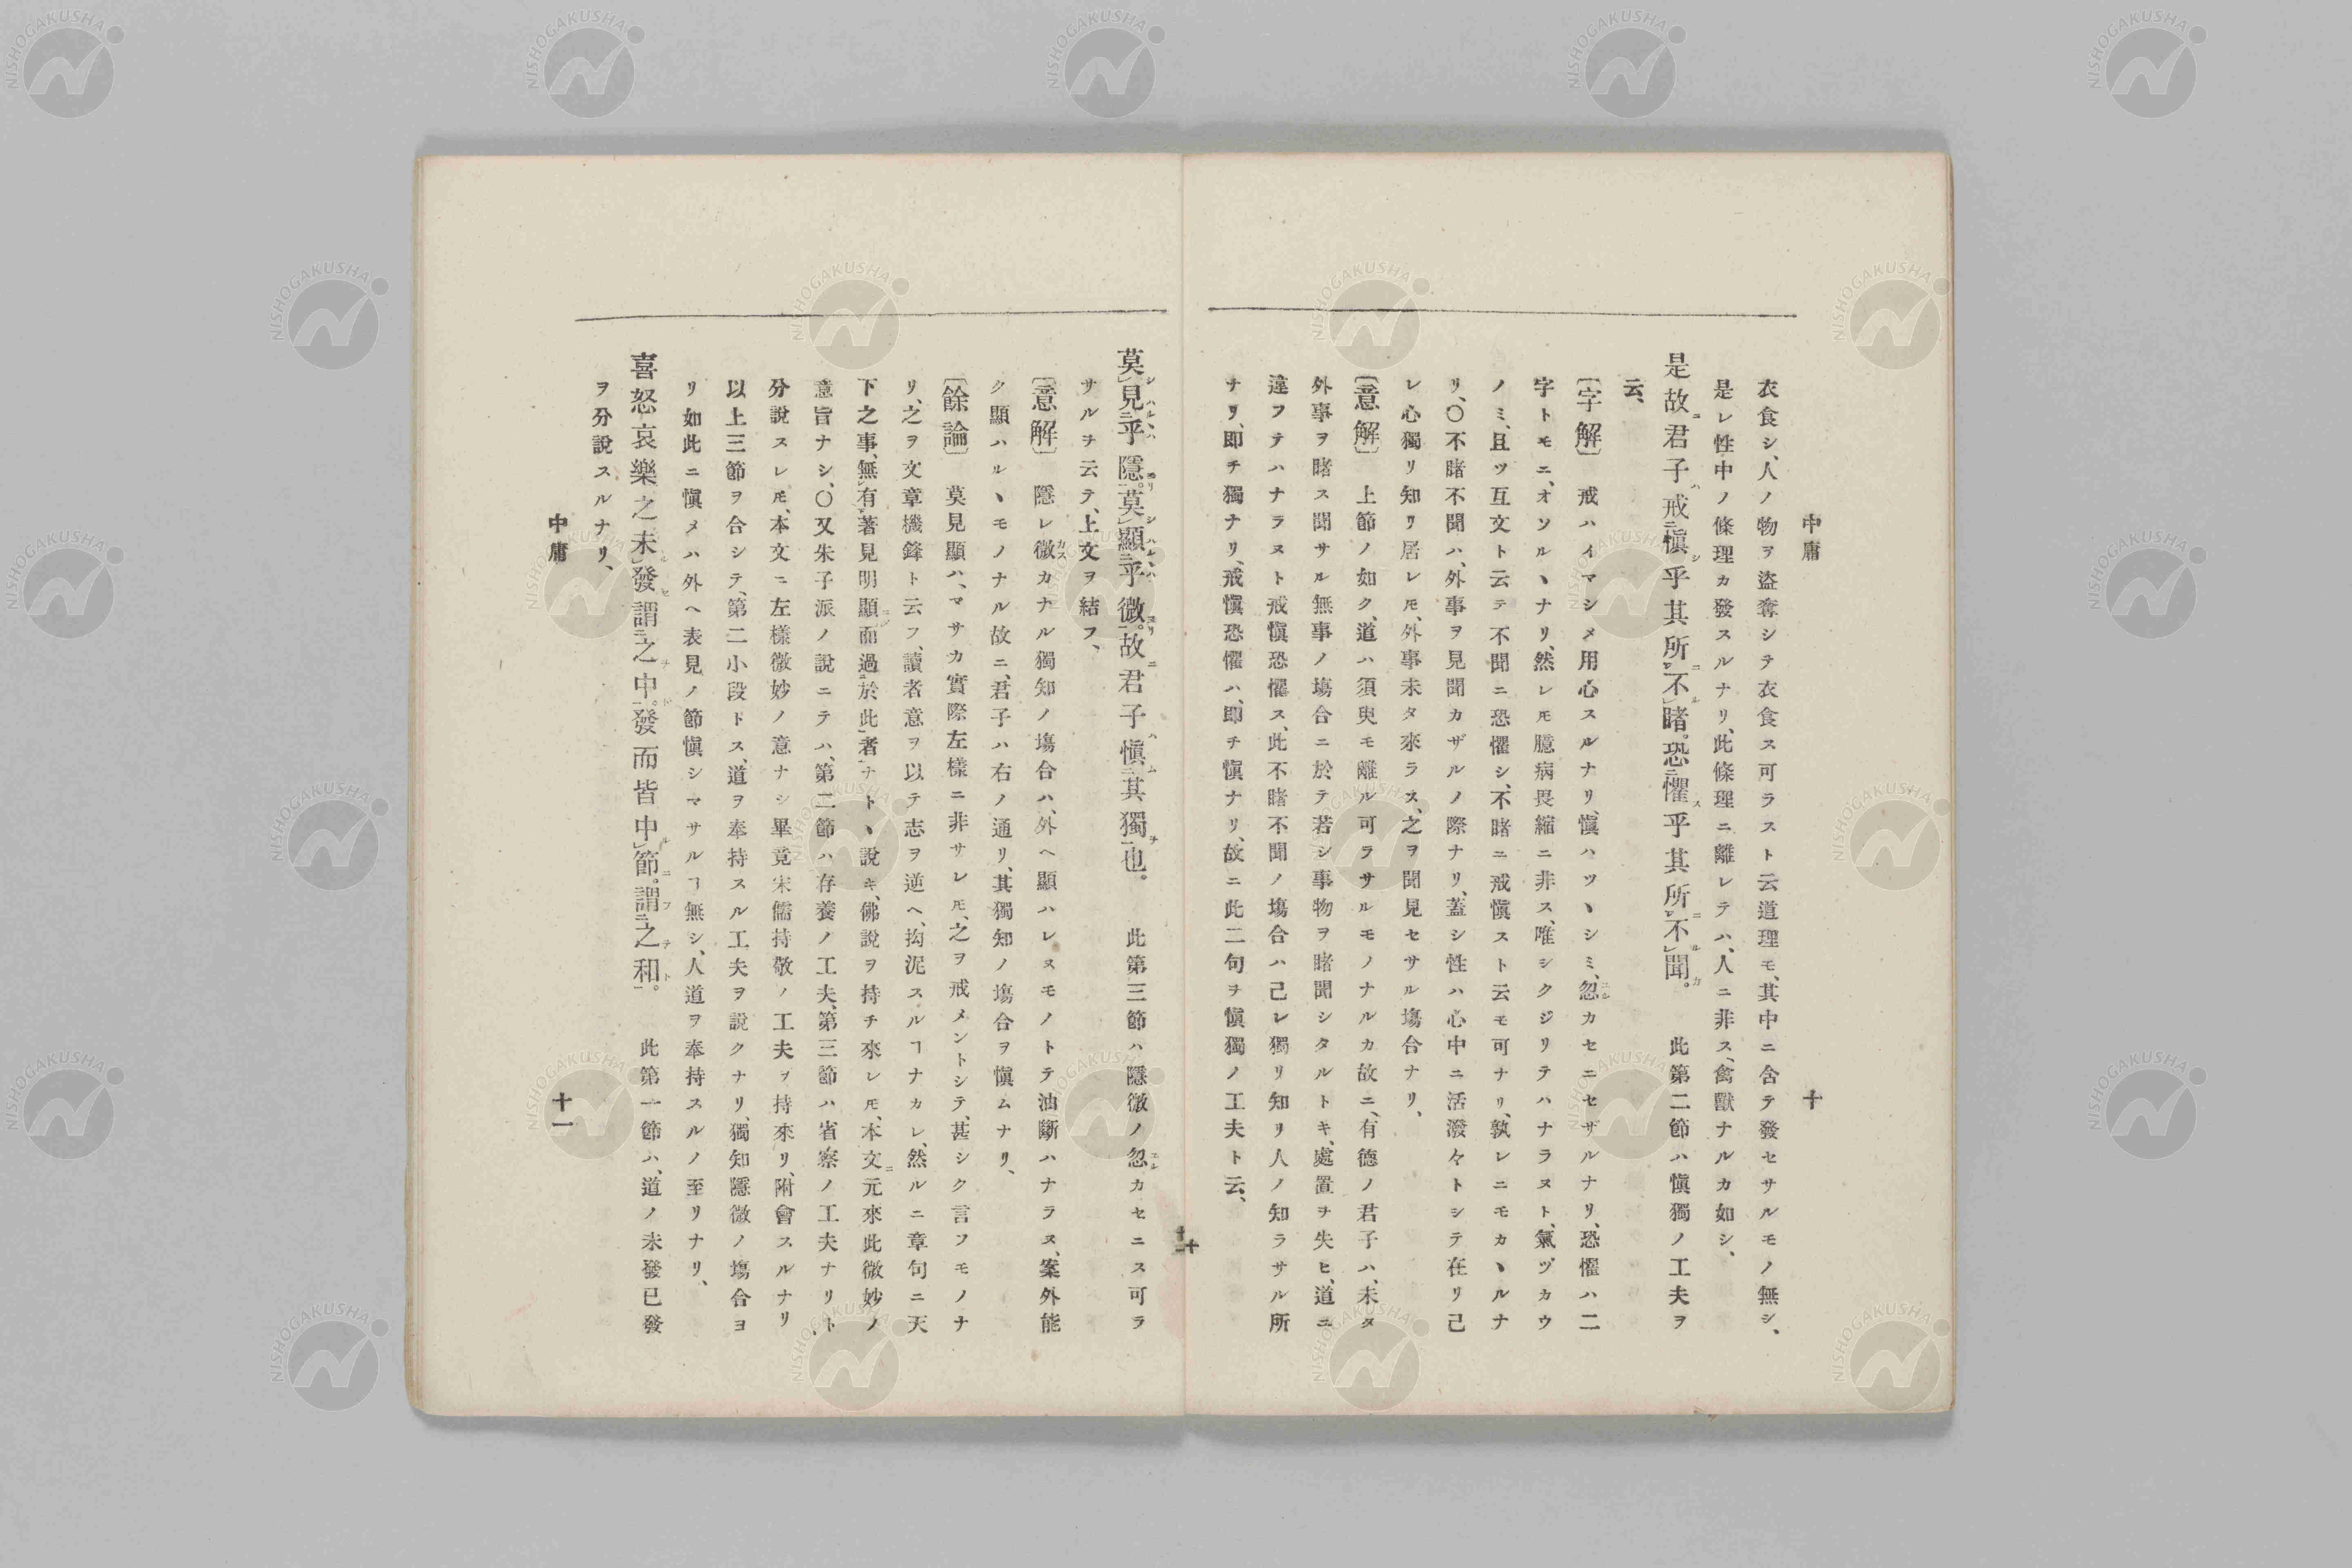 中庸
十
衣食シ、人ノ物ヲ盜奪シテ衣食ス可ラスト云道理モ、其中ニ含テ發セサルモノ無シ、
是レ性中ノ條理カ發スルナリ、此條理ニ離レテハ、人ニ非ス、禽獸ナルカ如シ、
是故君子戒愼乎其所不睹。恐懼乎其所不聞。 此第二節ハ愼獨ノ工夫ヲ
云、
〔字解〕 戒ハイマシメ用心スルナリ、愼ハツヽシミ、忽カセニセザルナリ、恐懼ハ二
字トモニ、オソルヽナリ、然レ𪜈臆病畏縮ニ非ス、唯シクジリテハナラヌト、氣ヅカウ
ノミ、且ツ互文ト云テ不聞ニ恐懼シ、不睹ニ戒愼スト云モ可ナリ、孰レニモカヽルナ
リ、〇不睹不聞ハ、外事ヲ見聞カザルノ際ナリ、蓋シ性ハ心中ニ活潑々トシテ在リ己
レ心獨リ知リ居レ𪜈、外事未タ來ラス、之ヲ聞見セサル塲合ナリ、
〔意解〕 上節ノ如ク、道ハ須臾モ離ル可ラサルモノナルカ故ニ、有德ノ君子ハ、未タ
外事ヲ睹ス聞サル無事ノ塲合ニ於テ若シ事物ヲ睹聞シタルトキ、處置ヲ失ヒ、道ニ
違フテハナラヌト戒愼恐懼ス、此不睹不聞ノ塲合ハ己レ獨リ知リ人ノ知ラサル所
ナリ、即チ獨ナリ、戒愼恐懼ハ、即チ愼ナリ、故ニ此二句ヲ愼獨ノ工夫ト云、
十
十一
莫見乎隱。莫顯乎微。故君子愼其獨也。 此第三節ハ隱微ノ忽カセニス可ラ
サルヲ云テ、上文ヲ結フ、
〔意解〕 隱レ微カナル獨知ノ塲合ハ、外ヘ顯ハレヌモノトテ油斷ハナラヌ、案外能
ク顯ハルヽモノナル故ニ、君子ハ右ノ通リ、其獨知ノ塲合ヲ愼ムナリ、
〔餘論〕 莫見顯ハ、マサカ實際左樣ニ非サレ𪜈、之ヲ戒メントシテ、甚シク言フモノナ
リ、之ヲ文章機鋒ト云フ、讀者意ヲ以テ志ヲ逆ヘ、拘泥スルヿナカレ、然ルニ章句ニ天
下之事、無有著見明顯而過於此者ナトヽ說キ、佛說ヲ持チ來レ𪜈、本文元來此微妙ノ
意旨ナシ、〇又朱子派ノ說ニテハ、第二節ハ存養ノ工夫、第三節ハ省察ノ工夫ナリト
分說スレ𪜈、本文ニ左樣微妙ノ意ナシ畢竟宋儒持敬ノ工夫ヲ持來リ、附會スルナリ、
以上三節ヲ合シテ、第二小段トス、道ヲ奉持スル工夫ヲ說クナリ、獨知隱微ノ塲合ヨ
リ如此ニ愼メハ外ヘ表見ノ節愼シマサルヿ無シ、人道ヲ奉持スルノ至リナリ、
喜怒哀樂之未發謂之中。發而皆中節。謂之和。 此第一節ハ、道ノ未發已發
ヲ分說スルナリ、
中庸
十一
NISHOGAKUSHA